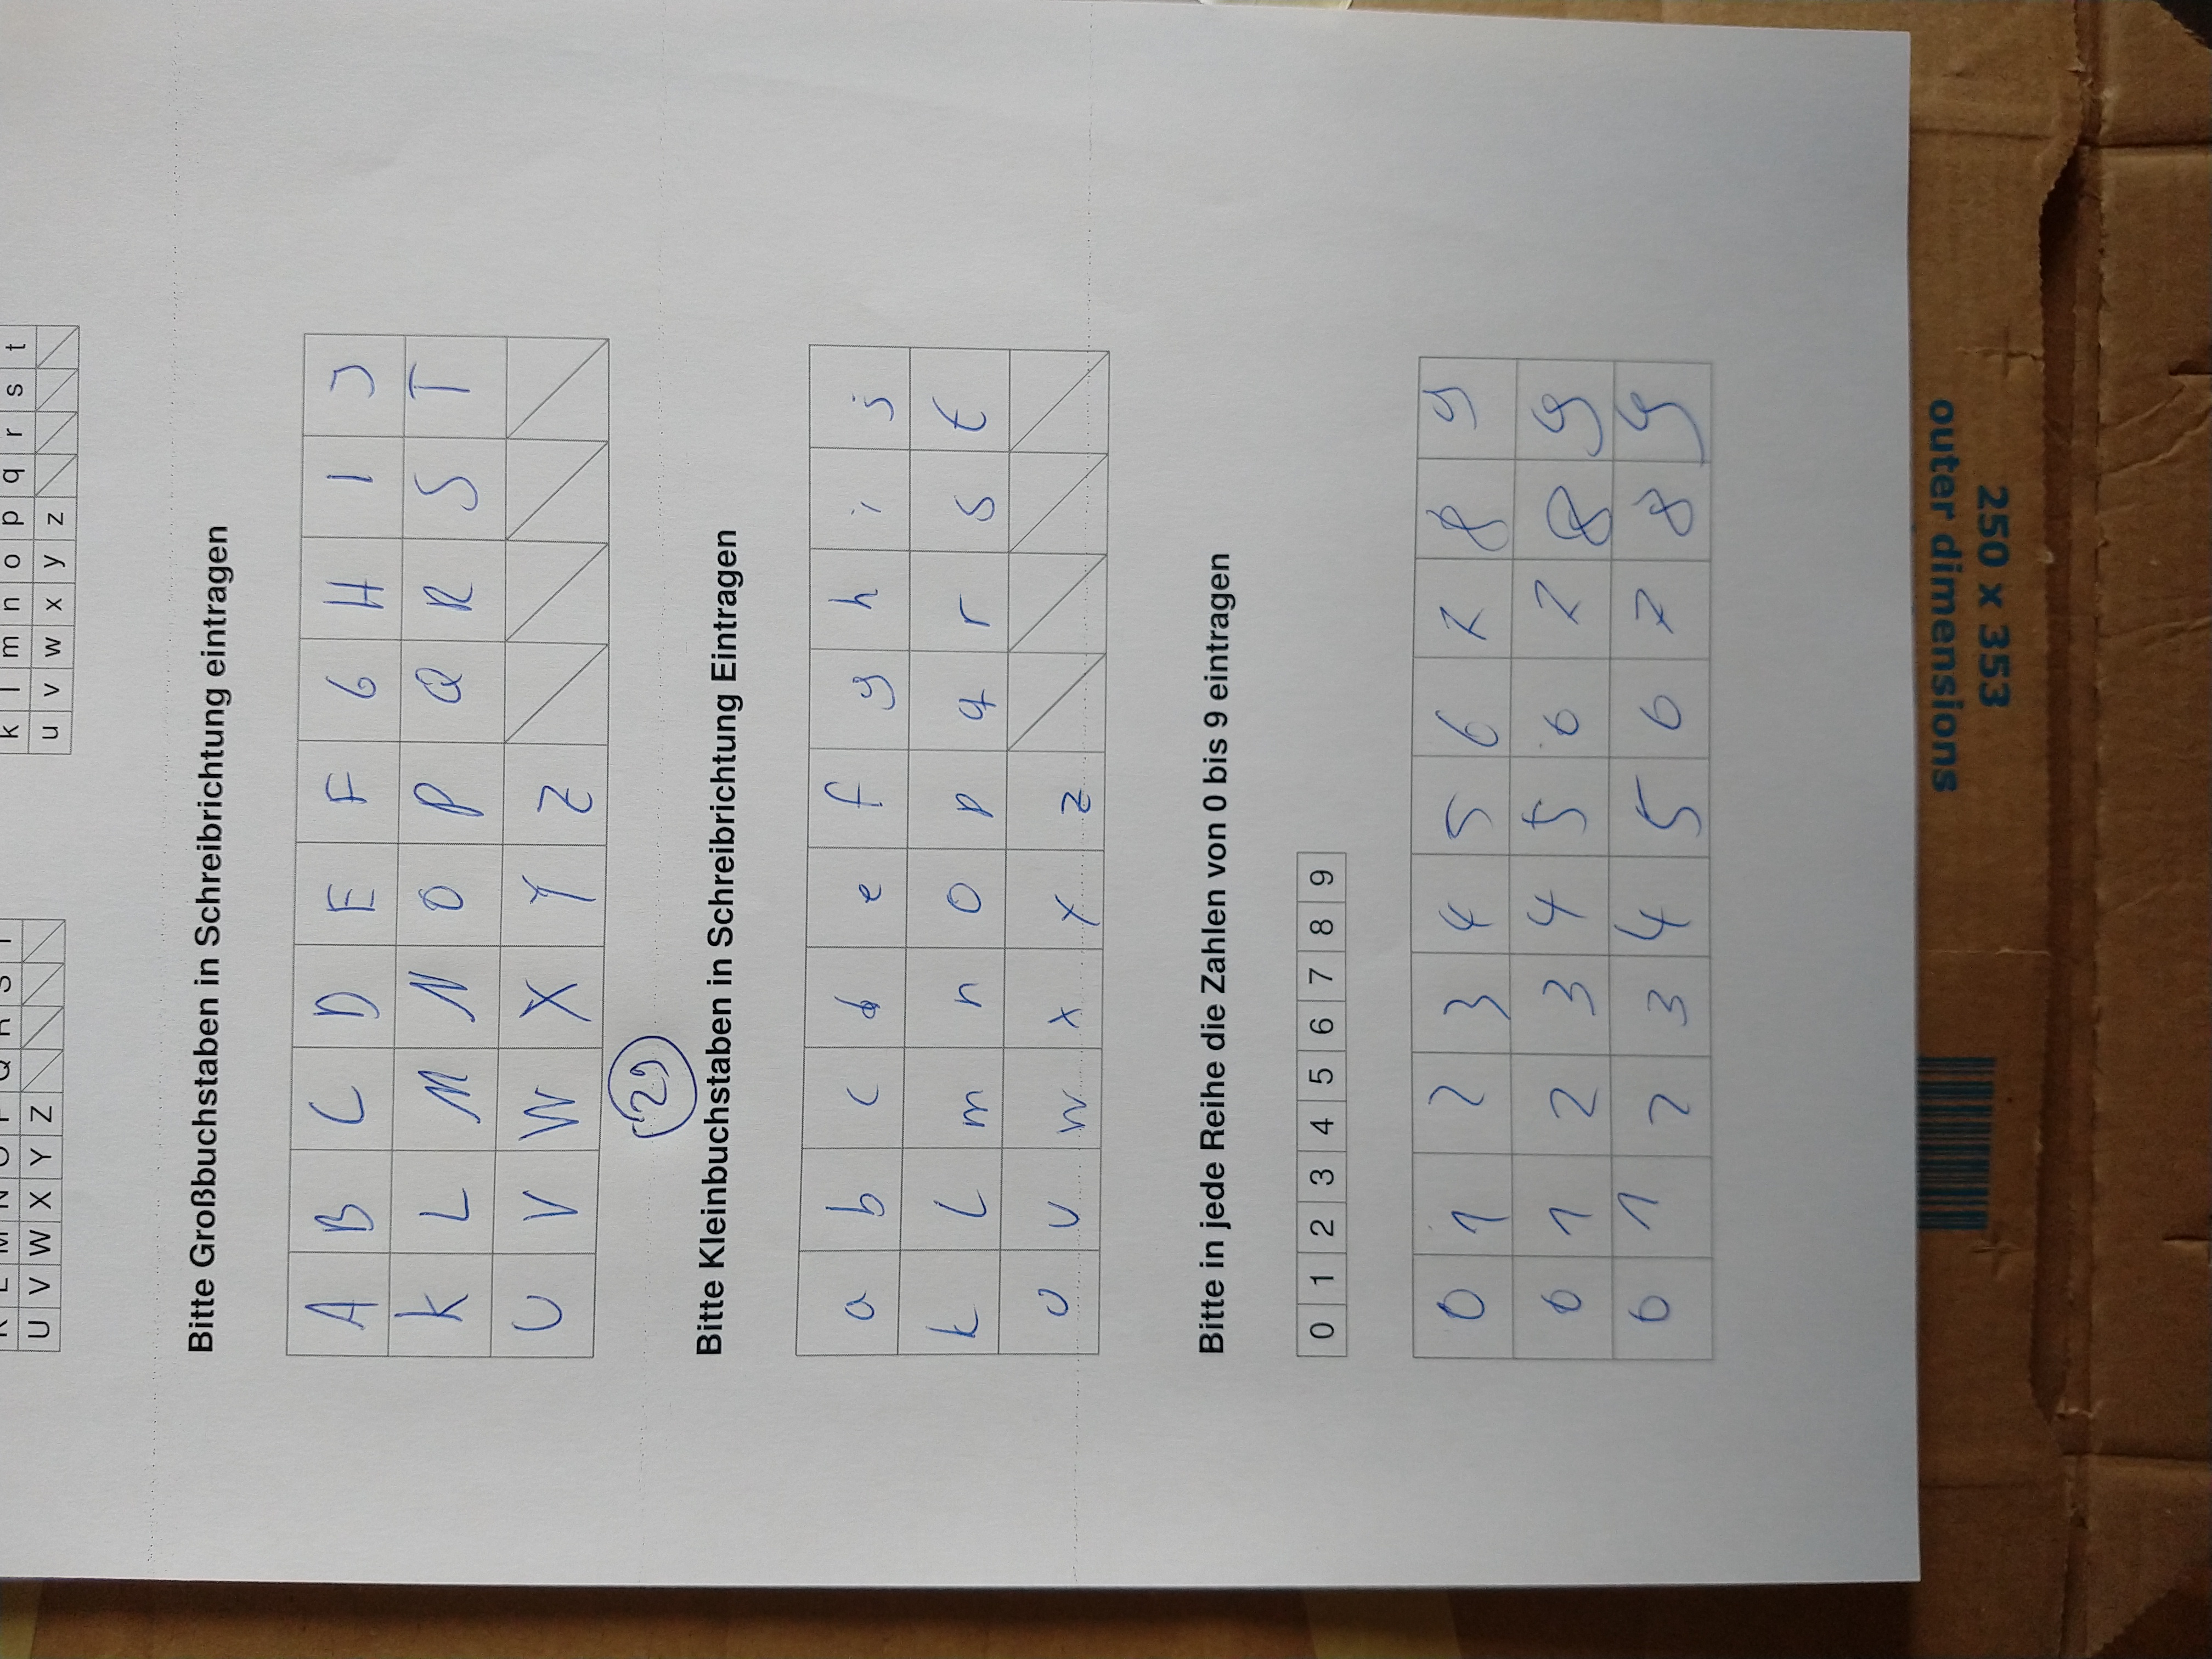 K L M N O P Q R S T
U V W X Y Z
k l m n o p q r s t
u v w x y z
Bitte Großbuchstaben in Schreibrichtung eintragen
A B C D E F G H I J
K L M N O P Q R S T
U V W X Y Z
29
Bitte Kleinbuchstaben in Schreibrichtung Eintragen
a b c d e f g h i j
k l m n o p q r s t
u v w x y z
Bitte in jede Reihe die Zahlen von 0 bis 9 eintragen
0 1 2 3 4 5 6 7 8 9
0 1 2 3 4 5 6 7 8 9
0 1 2 3 4 5 6 7 8 9
0 1 2 3 4 5 6 7 8 9
250 x 353
outer dimensions